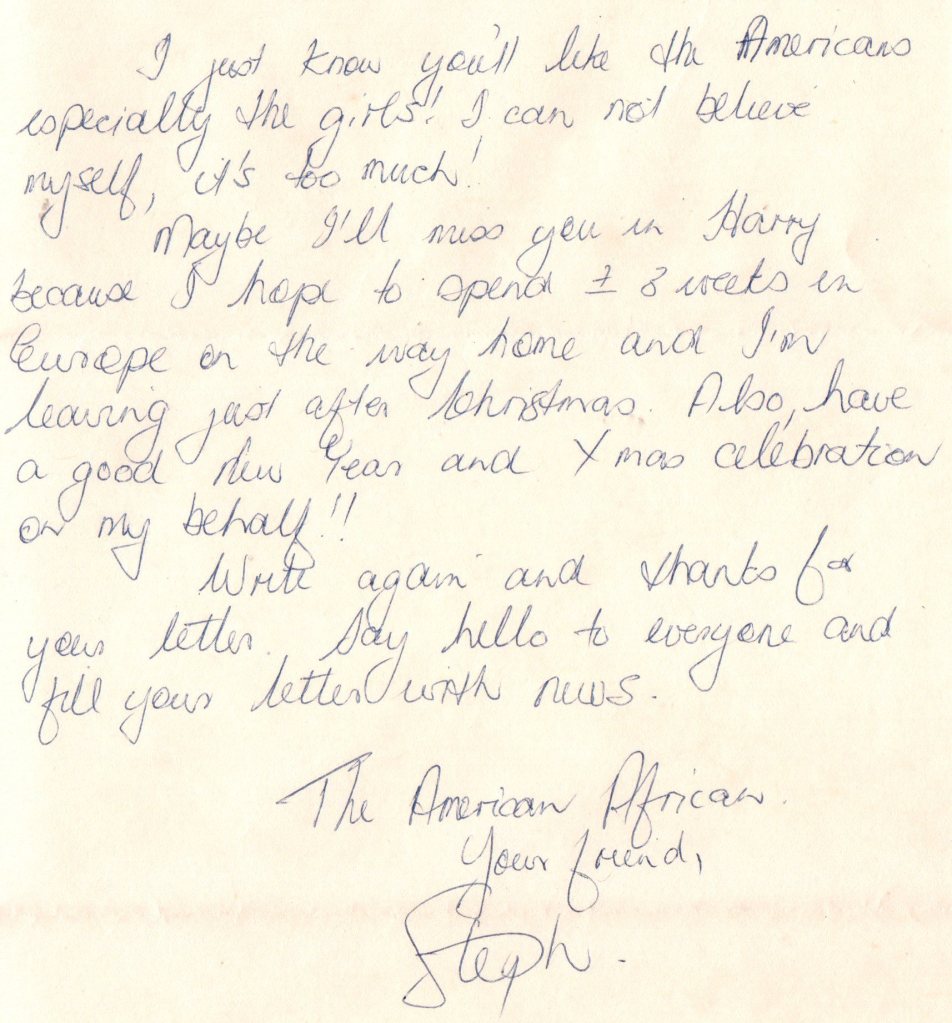 I just know you'll like the Americans
especially the girls! I can not believe
myself, it's too much!
Maybe I'll miss you in Harry
because I hope to spend ± 3 weeks in
Europe on the way home and I'm
leaving just after Christmas. Also, have
a good New Year and Xmas celebration
on my behalf!!
Write again and thanks for
your letter. Say hello to everyone and
fill your letter with news.
The American African.
Your friend,
Steph.